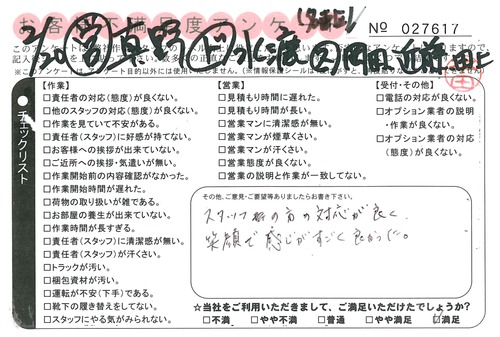 お客様不満足度アンケート
No 027617
2/30 営 真野
【作業】
□責任者の対応(態度)が良くない。
□他のスタッフの対応(態度)が良くない。
□作業を見ていて不安がある。
□責任者(スタッフ)に好感が持てない。
□お客様への挨拶が出来ていない。
□ご近所への挨拶・気遣いが無い。
□作業開始前の内容確認がなかった。
□作業開始時間が遅れた。
□荷物の取り扱いが雑である。
□お部屋の養生が出来ていない。
□作業時間が長すぎる。
□責任者(スタッフ)に清潔感が無い。
□責任者(スタッフ)が汗さい。
□トラックが汚い。
□梱包資材が汚い。
□運転が不安(下手)である。
□靴下の履き替えをしてない。
□スタッフにやる気がみられない。
【営業】
□見積もり時間に遅れた。
□見積もり時間が長い。
□営業マンの清潔感が無い。
□営業マンが煙草くさい。
□営業マンが汗さい。
□営業態度が良くない。
□営業の説明と作業が一致してない。
【受付・その他】
□電話の対応が良くない。
□オプション業者の説明
・作業が良くない。
□オプション業者の対応
(態度)が良くない。
チェックリスト
その他、ご意見・ご要望等ありましたらお書き下さい。
スタッフ様の方の対応が良く
笑顔で感じがすごく良かった。
☆当社をご利用いただきまして、ご満足いただけたでしょうか?
□不満 □やや不満 □普通 □やや満足 ☑満足